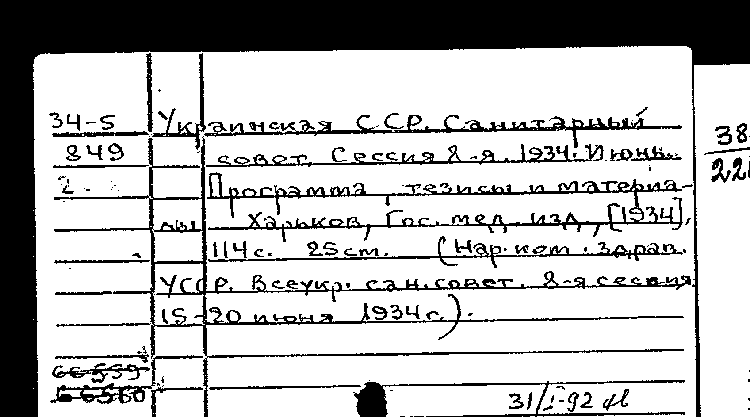 34-5 Украинская ССР. Санитарный
849 совет. Сессия 8-я. 1934. Июнь.
2. Программа, тезисы и материа-
лы Харьков, Гос. мед. изд., [1934].
114 с. 25 см. (Нар. ком. здрав.
УССР. Всеукр. сан. совет. 8-я сессия
15-20 июня 1934 г.).
66559
66560
31/I-92
38